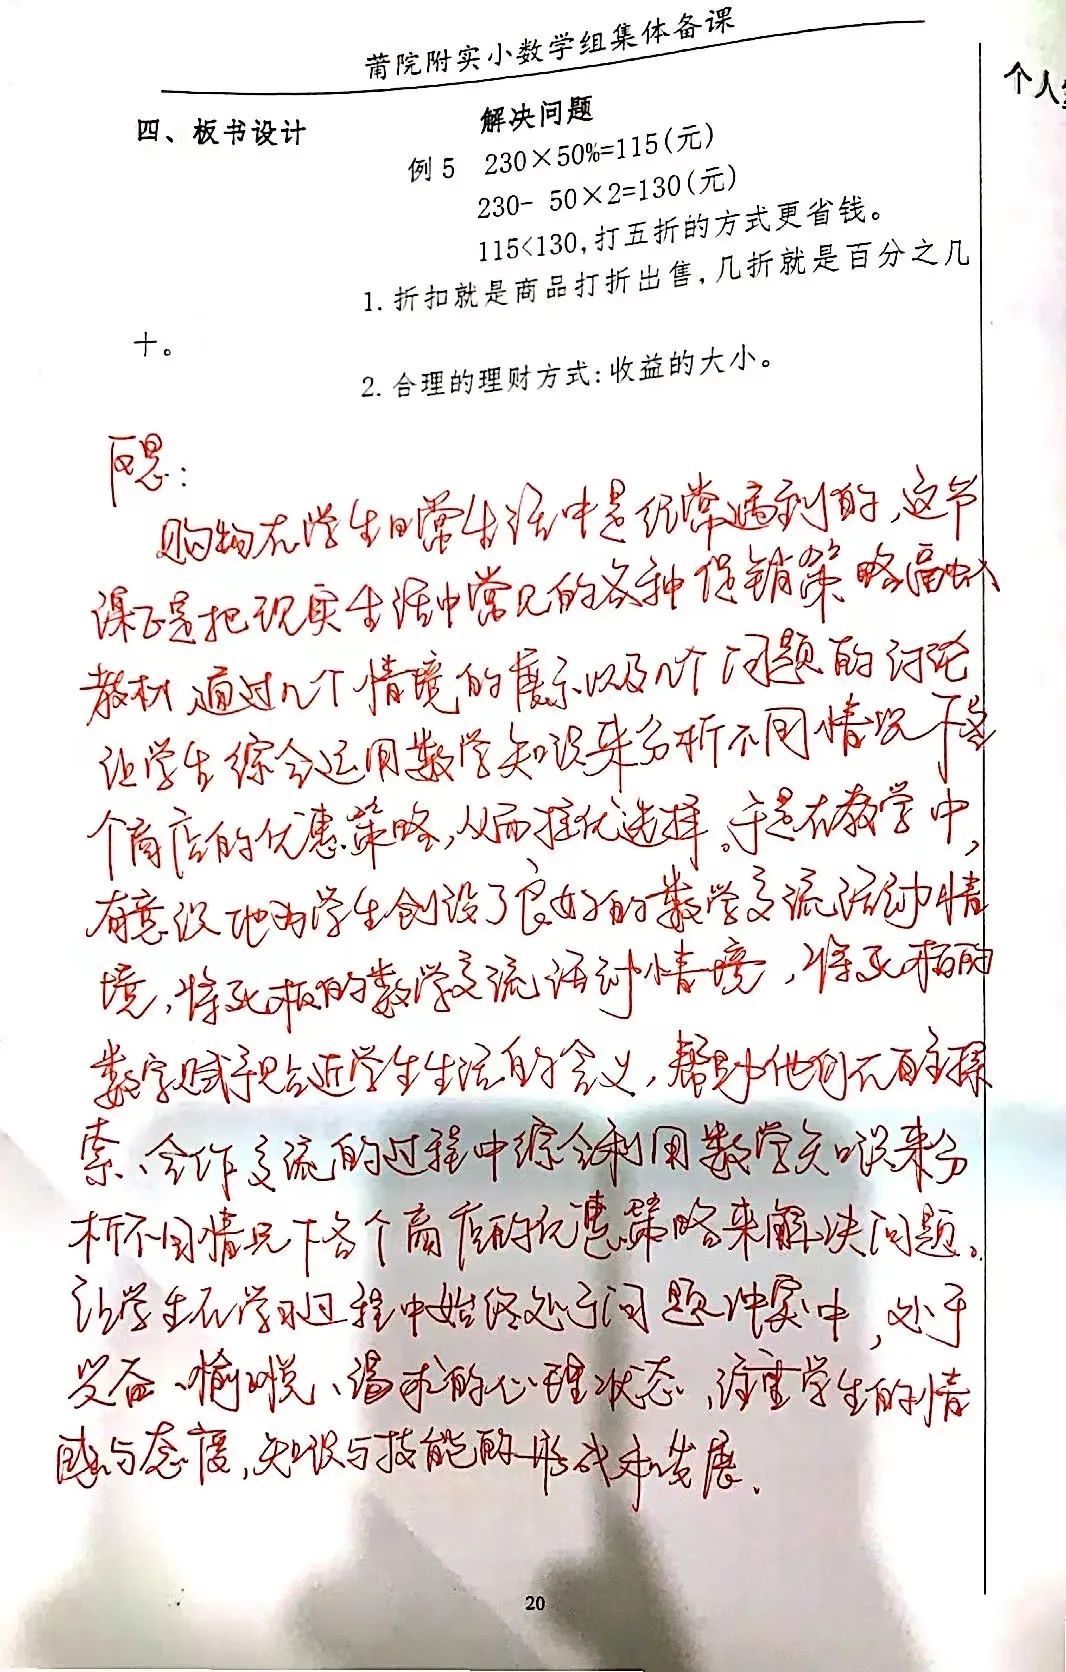 莆院附实小数学组集体备课
个人
四、板书设计
解决问题
例5 230×50%=115(元)
230- 50×2=130(元)
115<130,打五折的方式更省钱。
1.折扣就是商品打折出售,几折就是百分之几
十。
2.合理的理财方式:收益的大小。
反思:
购物在学生日常生活中是经常遇到的,这节
课正是把现实生活中常见的各种促销策略
教材,通过几个情境的展示以及几个问题的讨论
让学生综合运用数学知识来分析不同情况下各
个商店的优惠策略,从而择优选择。于是在教学中,
有意识地为学生创设了良好的数学交流活动情
境,将死板的数学交流活动情境,将死板的
数字赋予贴近学生生活的含义,帮助他们在自主探
索、合作交流的过程中综合利用数学知识来分
析不同情况下各个商店的优惠策略来解决问题。
让学生在学习过程中始终处于问题冲突中,处于
兴奋、愉悦、渴求的心理状态,注重学生的情
感与态度,知识与技能的形成和发展.
20